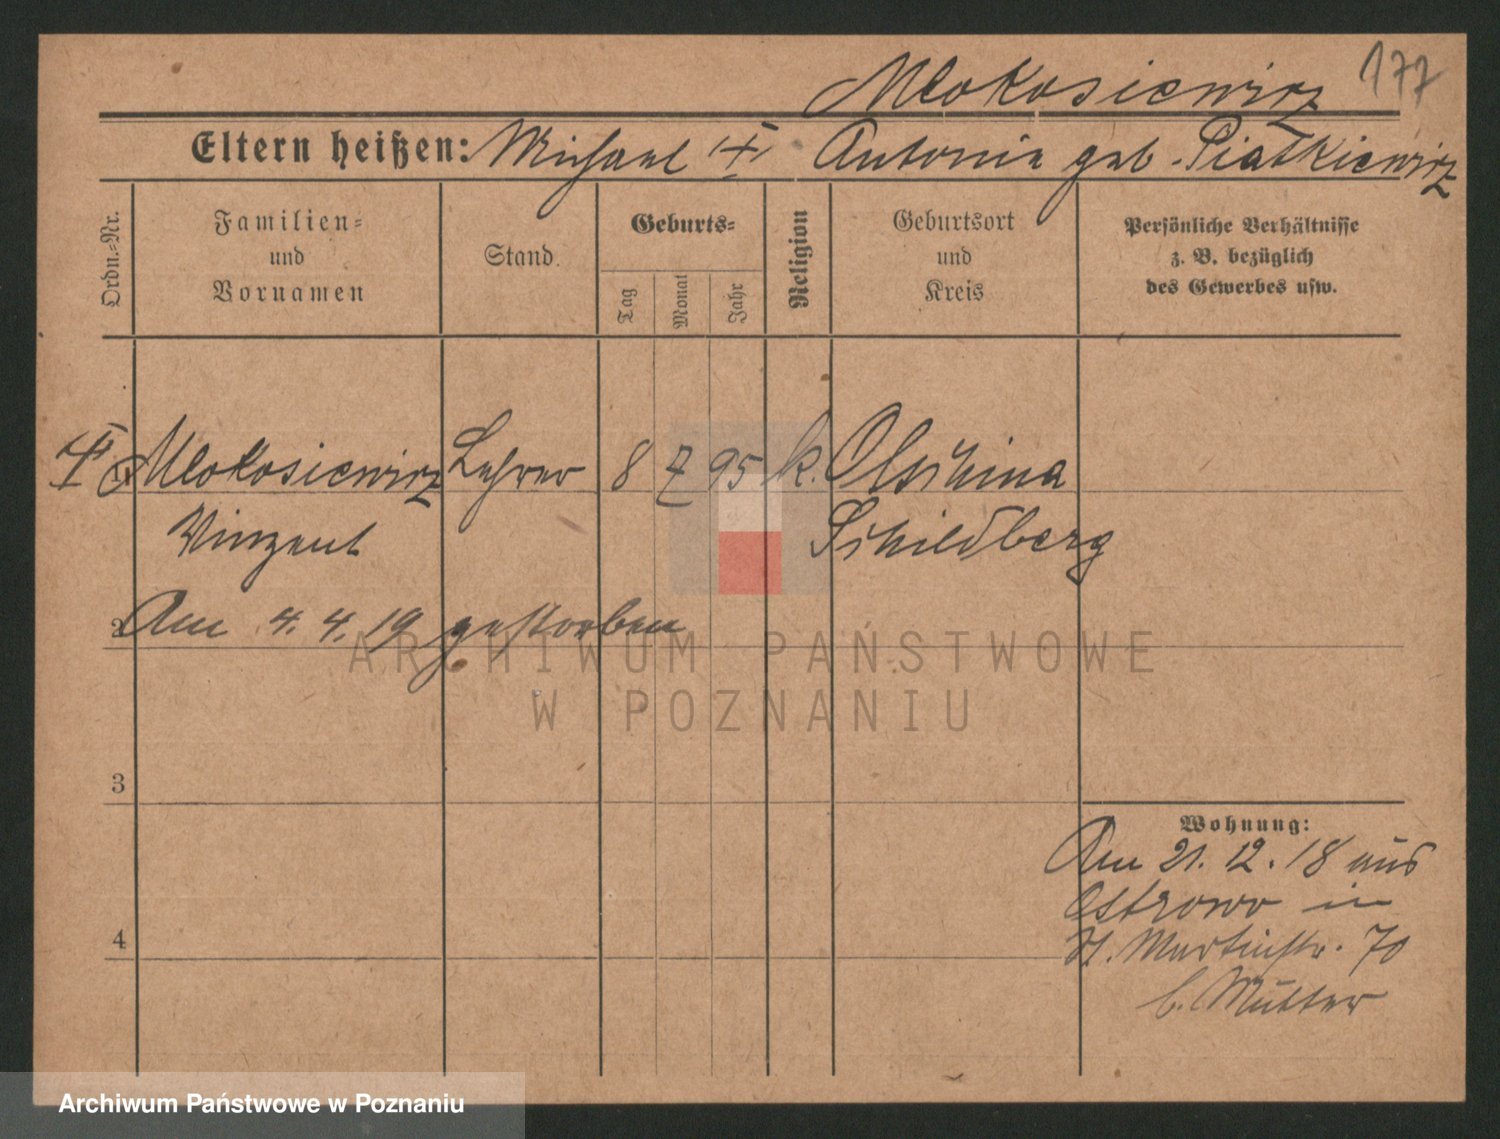 Mlokosiewicz 177
Eltern heißen: Michael † Antonie geb. Piatkiewicz
Ordn.-Nr.
Familien- und Vornamen
Stand.
Geburts-
Tag
Monat
Jahr
Religion
Geburtsort und Kreis
Persönliche Verhältnisse
z. B. bezüglich
des Gewerbes usw.
† Mlokosiewicz Lehrer 8 7 95 k. Olschina
Vinzent Schildberg
2 Am 4. 4. 19 gestorben
3
Wohnung:
Am 21. 12. 18 aus
Ostrowo in
4 St. Martinstr. 70
b. Mutter
ARCHIWUM PAŃSTWOWE
W POZNANIU
Archiwum Państwowe w Poznaniu